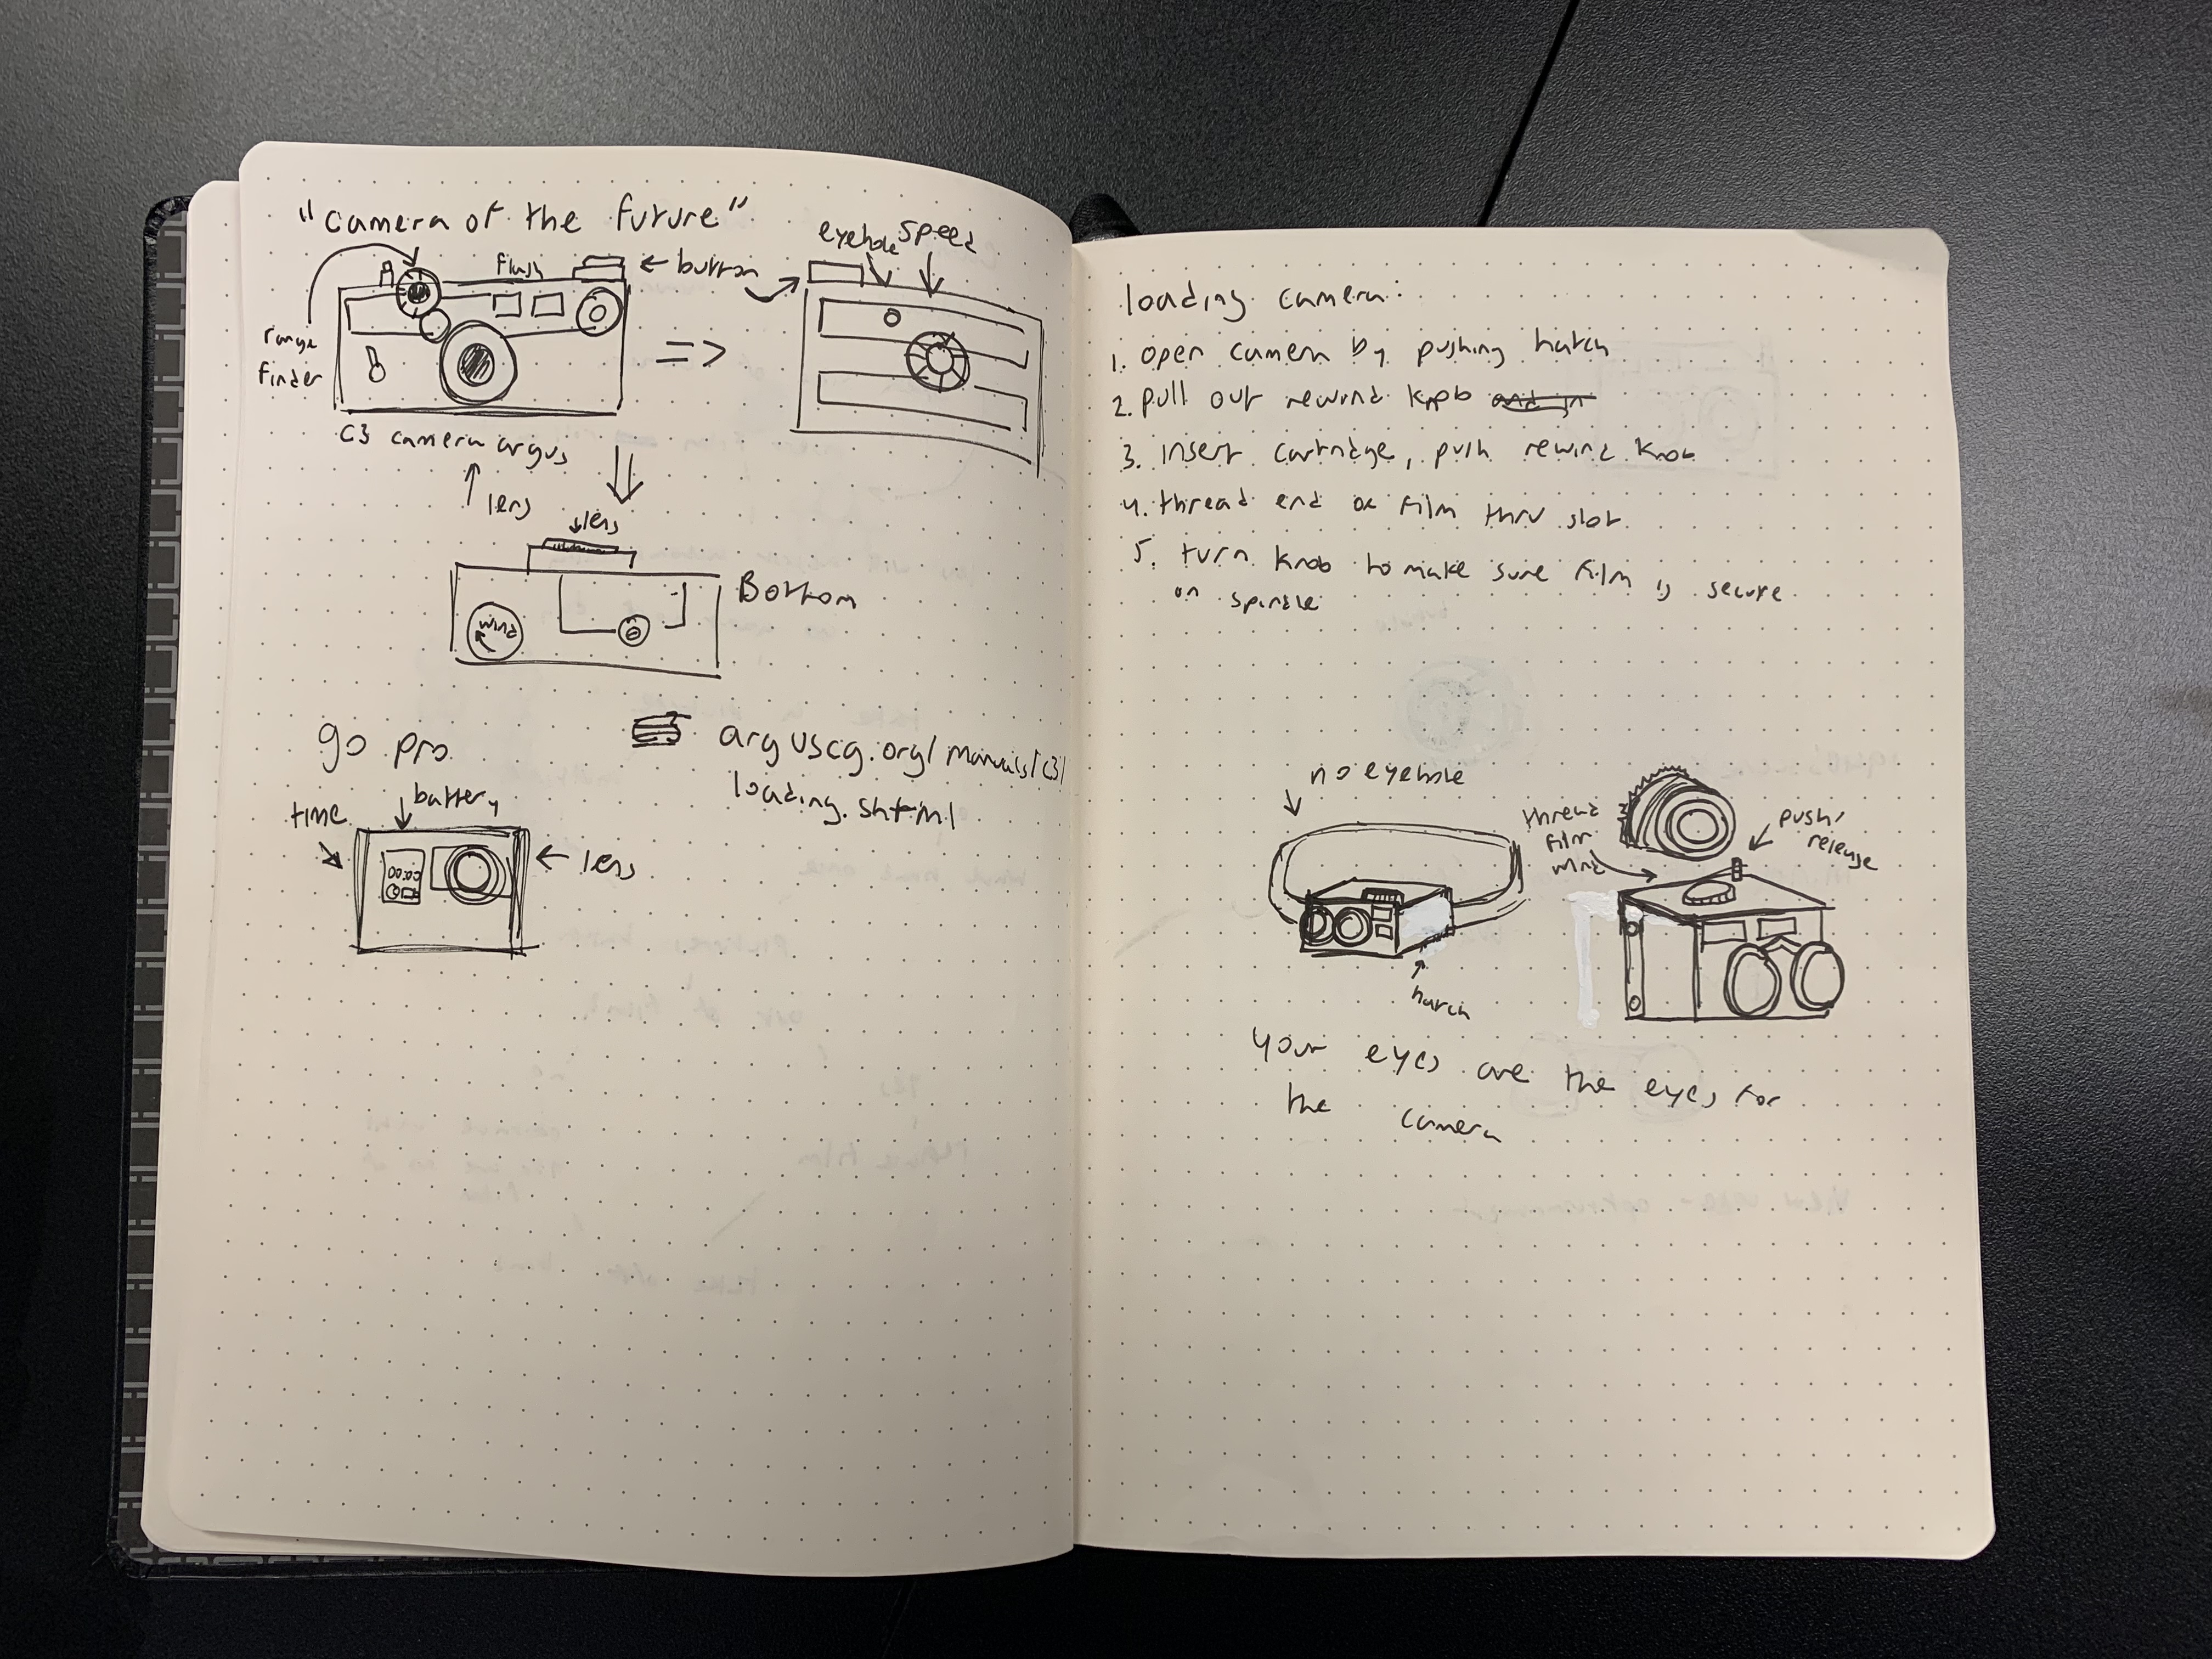 "camera of the future"
eyehole speed
flash
← button
range
finder
=>
C3 camera argus
lens
lens
Bottom
wind
go pro
arguscg.org/manuals/c3/
loading.shtml
battery
time
← lens
loading camera:
1. open camera by pushing hatch
2. pull out rewind knob
3. insert cartridge, push rewind knob
4. thread end of film thru slot
5. turn knob to make sure film is secure
on spindle
no eyehole
thread
film
wind
push/
release
hatch
your eyes are the eyes for
the camera